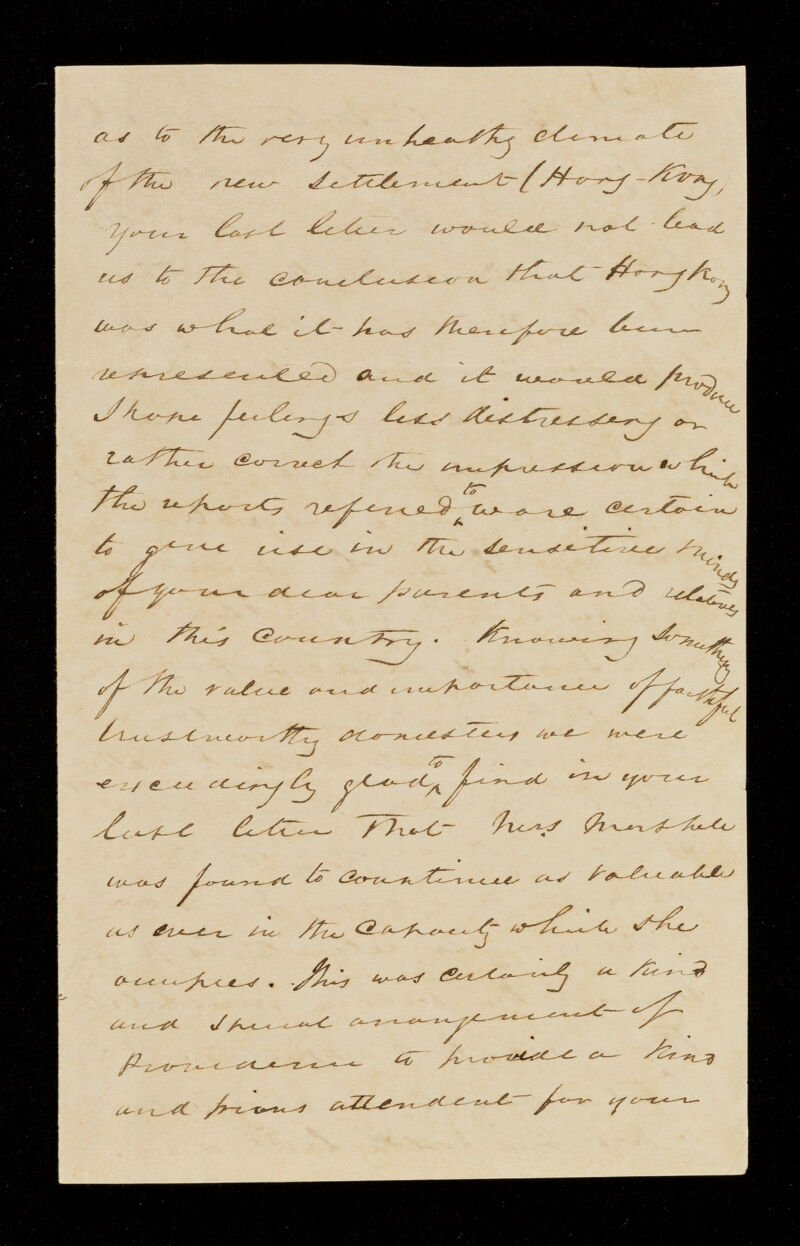 as to the very unhealthy climate
of the new settlement (Hong-Kong,
your last letter would not lead
us to the conclusion that Hong Kong
was what it has therefore been
represented and it would produce
I hope feelings less distressing or
rather correct the impression which
the reports referred to we are certain
to give rise in the sensitive minds
of your dear parents and relatives
in this country. Knowing something
of the value and importance of faithful
trustworthy domestics we were
exceedingly glad to find in your
last letter that Mrs.
was found to countinue as valuable
as ever in the capacity which she
occupies. This was certainly a kind
and special arrangement of
Providence to provide a kind
and pious attendent for your